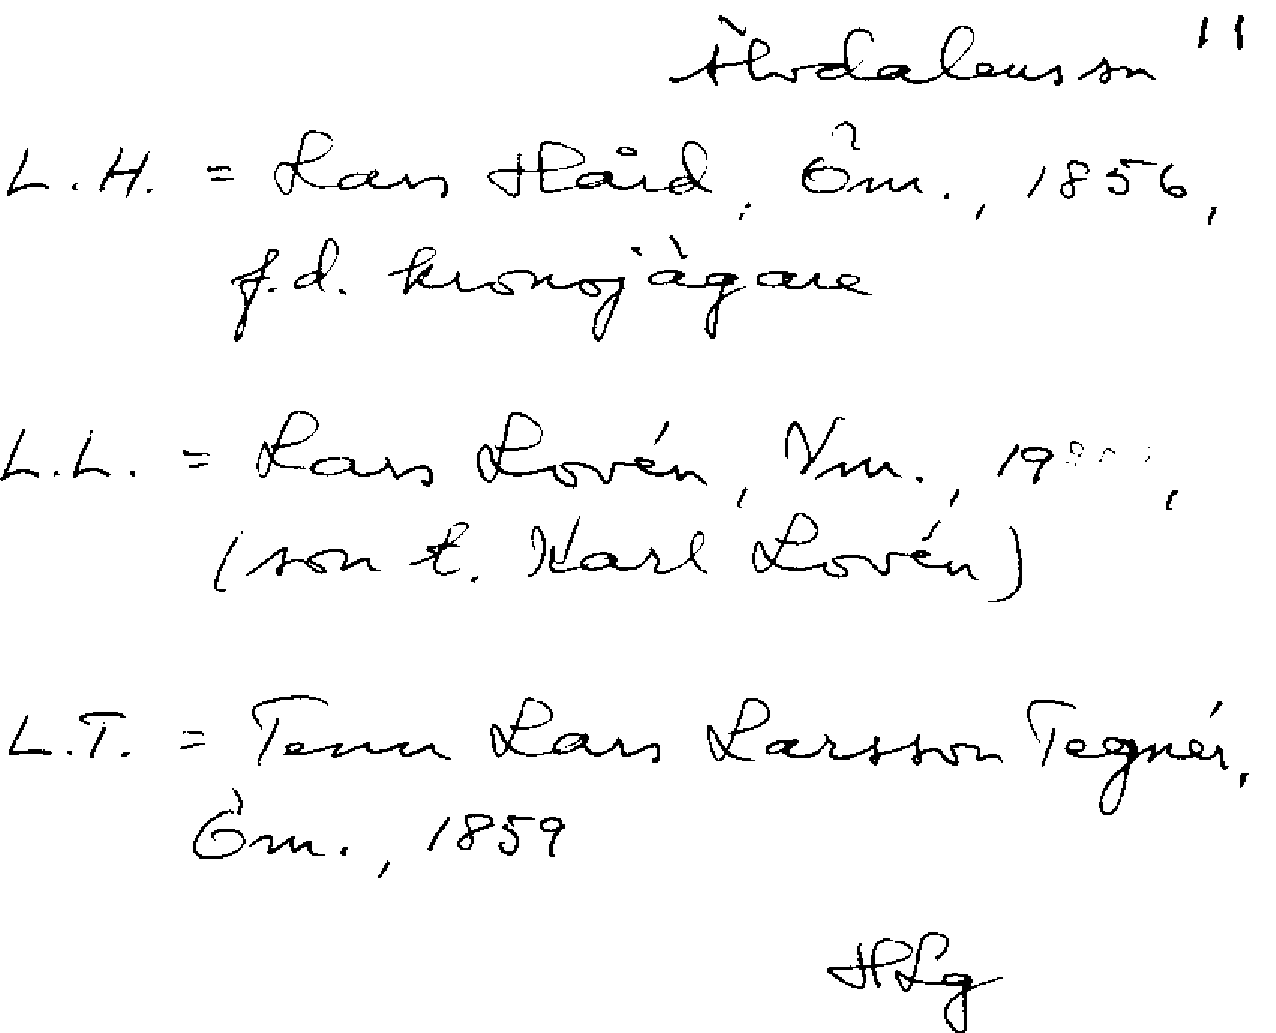 Älvdalens sn 11
L.H. = Lars Hård, Öm., 1856,
f.d. kronojägare
L.L. = Lars Lovén, Vm.,
(son t. Karl Lovén)
L.T. = Tenn Lars Larsson Tegnér,
Öm., 1859
HLg